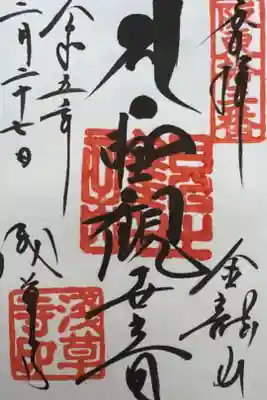 奉拝
金龍山
聖観世音
浅草寺
浅草寺印
令和五年
二月二十七日